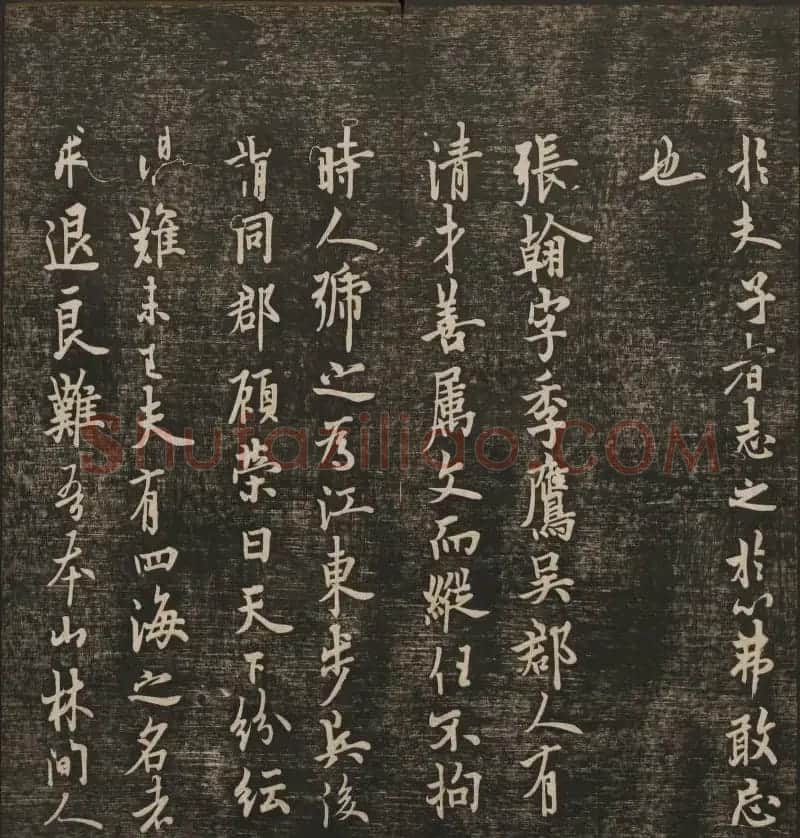 於夫子者志之於心弗敢忘
也
張翰字季鷹吴郡人有
清才善属文而縱任不拘
時人號之為江東步兵後
謂同郡顧荣曰天下紛紜
禍難未已夫有四海之名者
求退良難吾本山林間人
Shufaziliao.COM